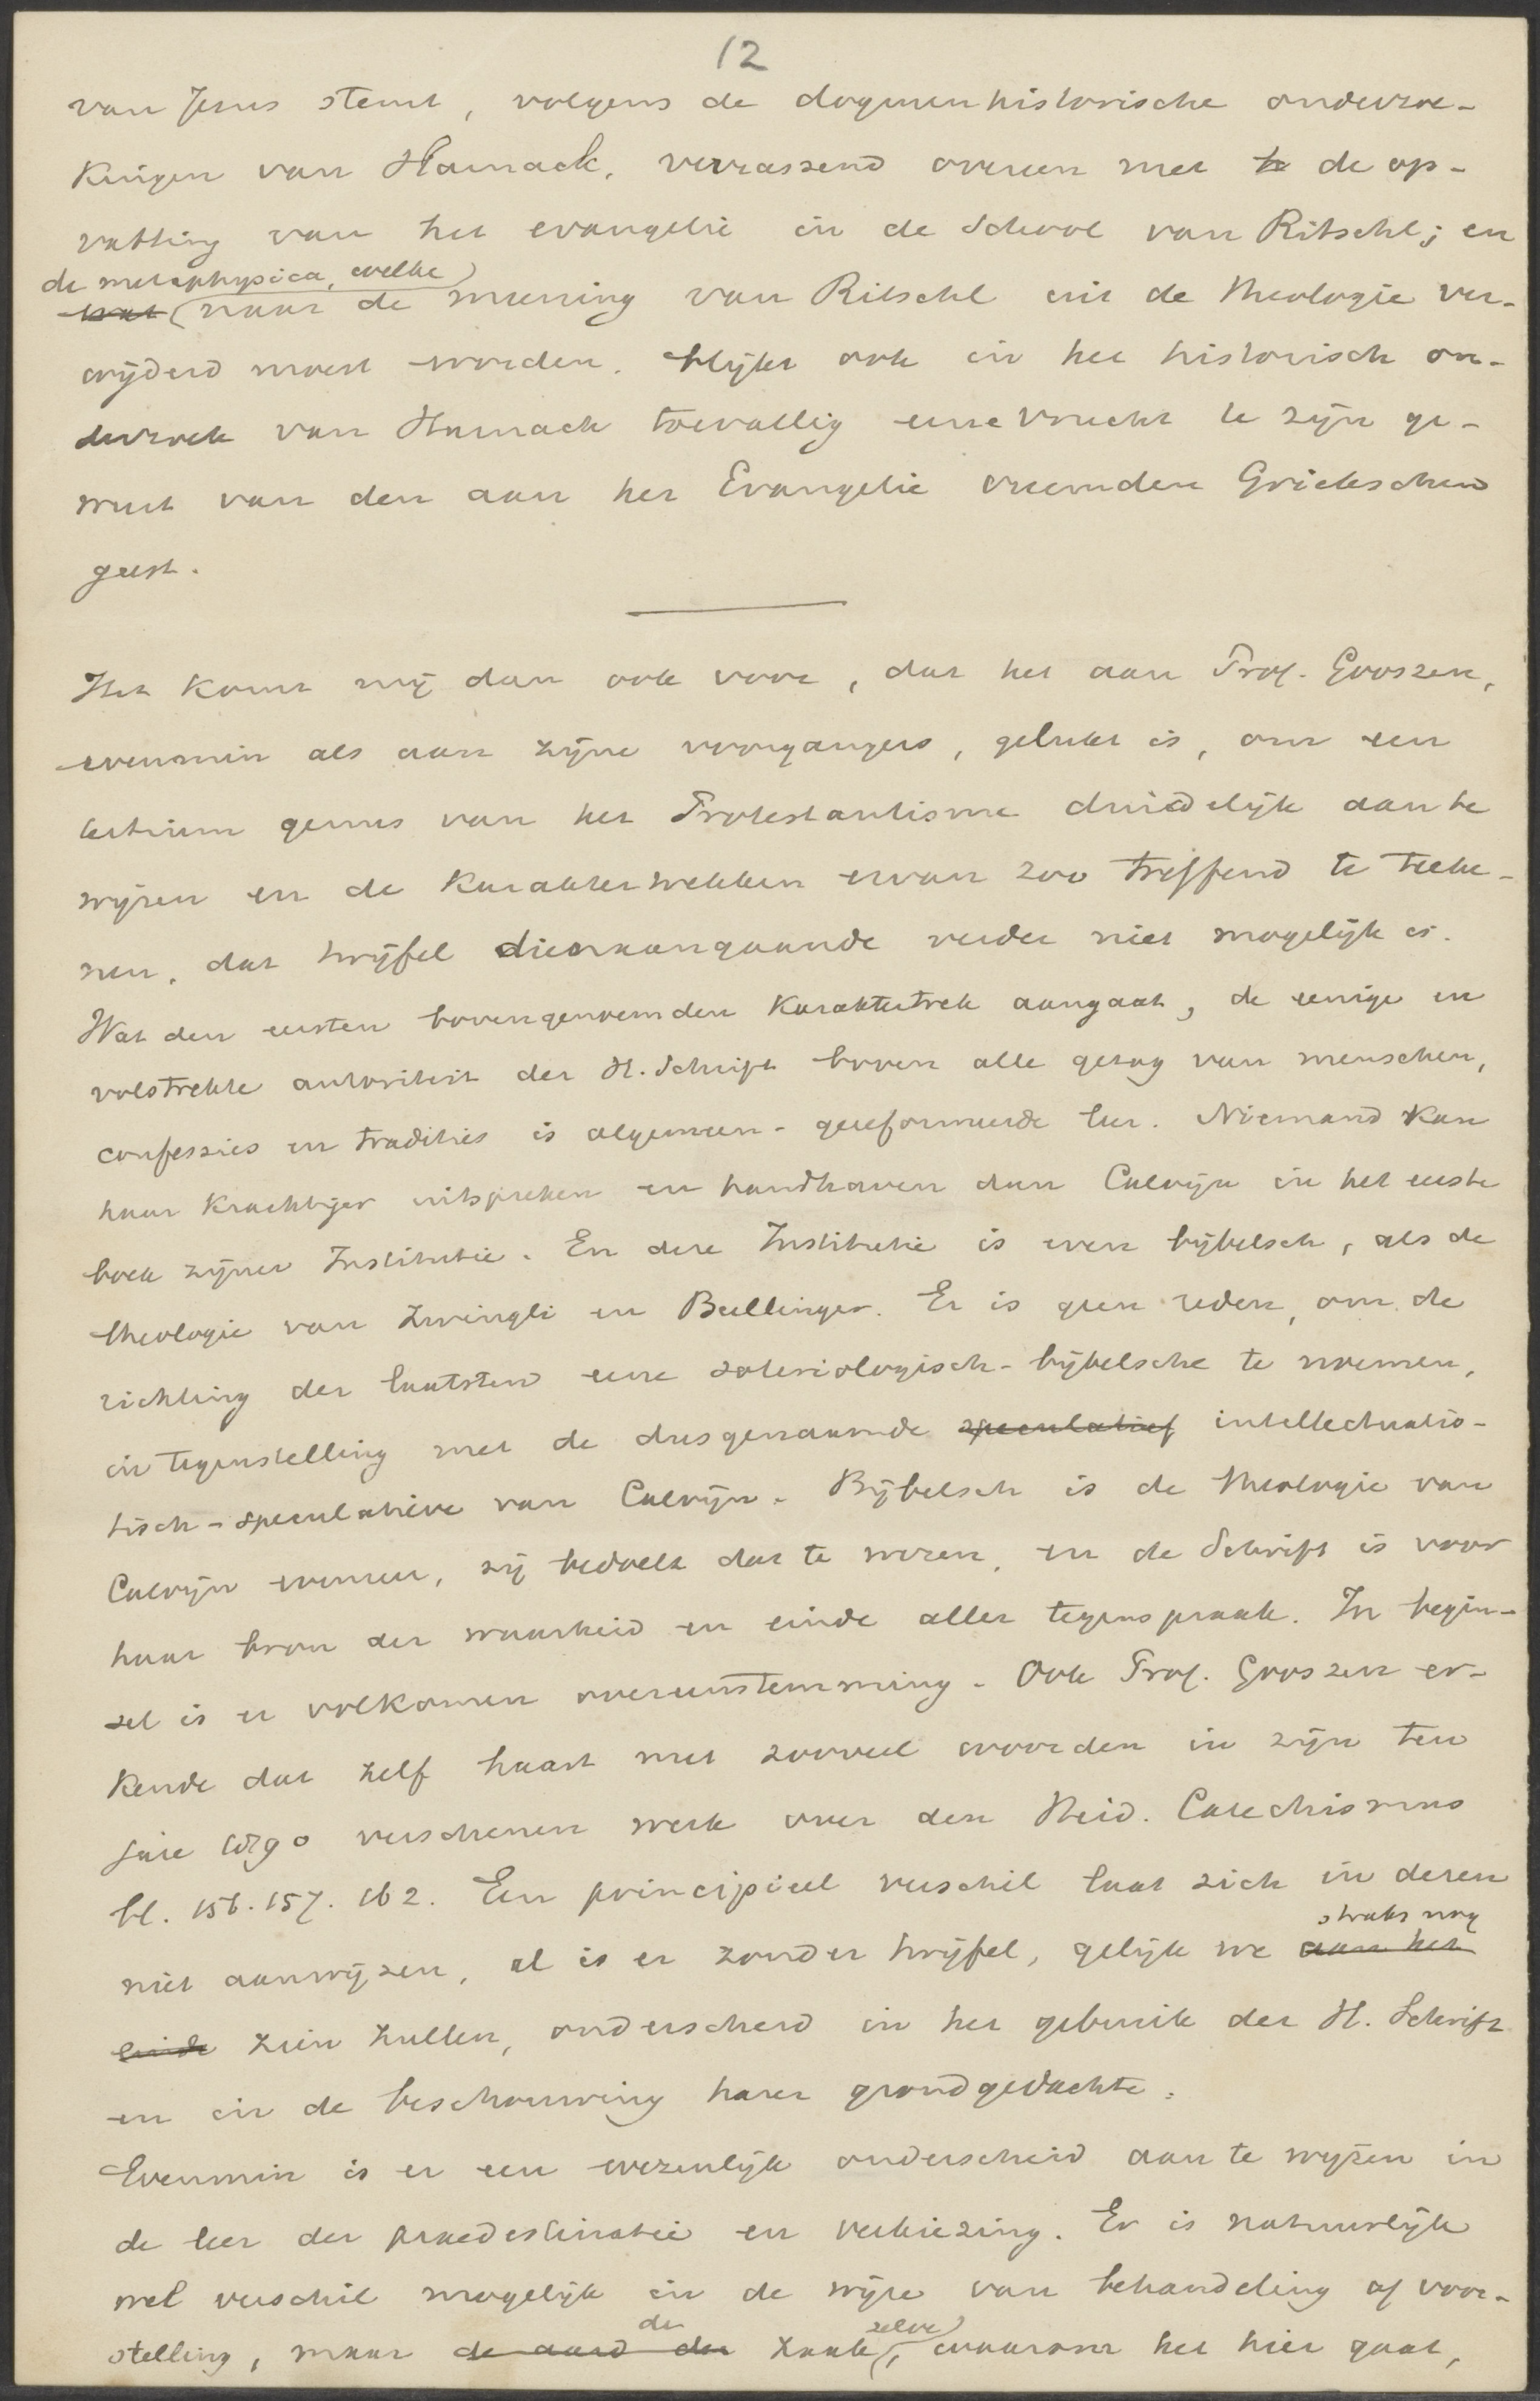 12
van Jezus stemt, volgens de dogmenhistorische onderzoe-
kingen van Harnack, verrassend overeen met te de op-
vatting van het evangelie in de school van Ritschl; en
de metaphysica, welke
wat naar de meening van Ritschl uit de theologie ver-
wijderd moest worden, blijkt ook in het historisch on-
derzoek van Harnack toevallig eene vrucht te zijn ge-
weest van den aan het Evangelie vreemden Griekschen
geest.
Het komt mij dan ook voor, dat het aan Prof. Gooszen,
evenmin als aan zijne voorgangers, gelukt is, om een
tertium genus van het Protestantisme duidelijk aan te
wijzen en de karaktertrekken ervan zoo treffend te teeke-
nen, dat twijfel dienaangaande verder niet mogelijk is.
Wat den eersten bovengenoemden karaktertrek aangaat, de eenige en
volstrekte autoriteit der H. Schrift boven alle gezag van menschen,
confessies en tradities is algemeen-gereformeerde leer. Niemand kan
haar krachtiger uitspreken en handhaven dan Calvijn in het eerste
boek zijner Institutie. En deze Institutie is even bijbelsch, als de
theologie van Zwingli en Bullinger. Er is geen reden, om de
richting der laatsten eene soteriologisch-bijbelsche te noemen,
in tegenstelling met de dusgenaamde speculatief intellectualis-
tisch-speculatieve van Calvijn. Bijbelsch is de theologie van
Calvijn evenzeer, zij bedoelt dat te wezen, en de Schrift is voor
haar bron der waarheid en einde aller tegenspraak. In begin-
sel is er volkomen overeenstemming. Ook Prof. Gooszen er-
kende dat zelf haast met zooveel woorden in zijn ten
jare 1890 verschenen werk over den Heid. Catechismus
bl. 156. 157. 162. Een principieel verschil laat zich in dezen
straks nog
niet aanwijzen, al is er zonder twijfel, gelijk we aan het
einde zien zullen, onderscheid in het gebruik der H. Schrift
en in de beschouwing harer grondgedachte.
Evenmin is er een wezenlijk onderscheid aan te wijzen in
de leer der praedestinatie en verkiezing. Er is natuurlijk
wel verschil mogelijk in de wijze van behandeling of voor-
de zelve
stelling, maar de aard der zaak, waarom het hier gaat,